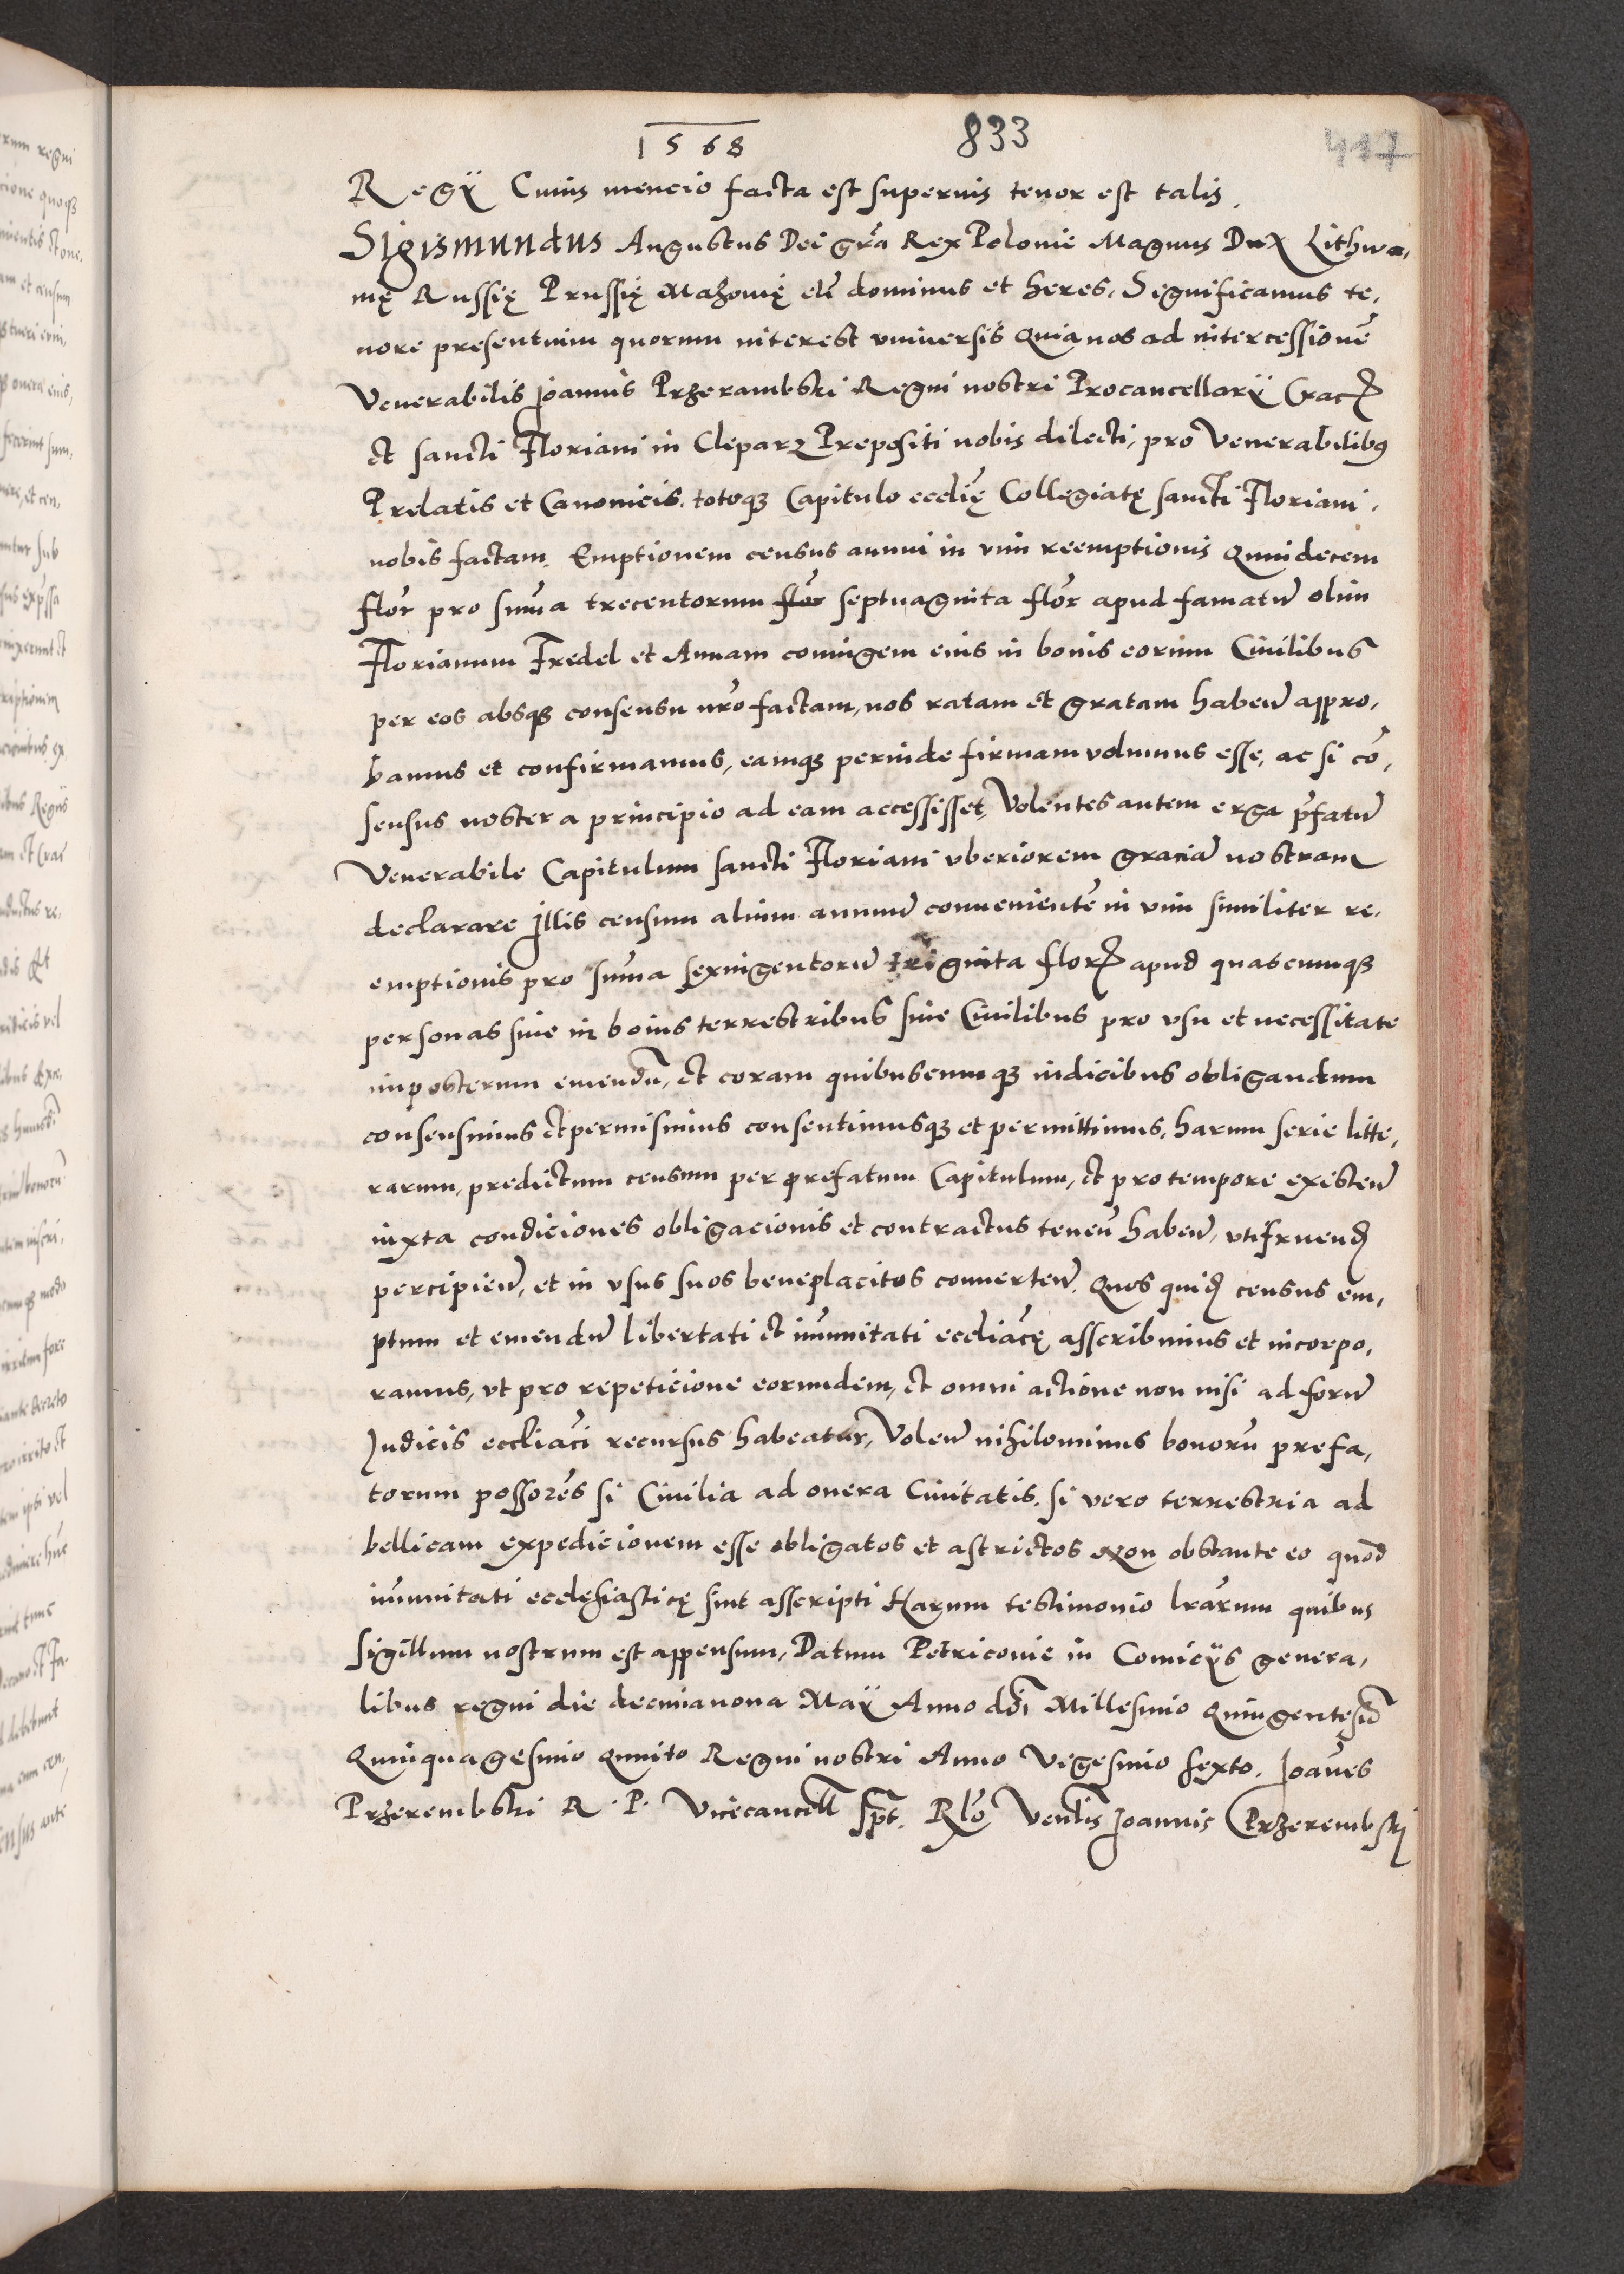 1568 833 417
Regÿ Cuius mencio facta est superius tenor est talis.
Sigismundus Augustus Dei gra Rex Polonie Magnus Dux Lithwa,
nię Russię Prussię Mazouię etc dominus et heres, Significamus te,
nore presentium quorum interest vniuersis Quia nos ad intercessionē
Venerabilis Joannis Przerambski Regni nostri Procancellarÿ Crac
et sancti Floriani in Clepar Prepositi nobis dilecti, pro Venerabilibus
Prelatis et Canonicis, totoque Capitulo ecclię Collegiatę sancti Floriani,
nobis factam, Emptionem census annui in vim reemptionis Quindecem
flor pro suma trecentorum flor septuaginta flor apud famatū olim
Florianum Fredel et Annam coniugem eius in bonis eorum Ciuilibus
per eos absque consensu nro factam, nos ratam et gratam haben appro,
bamus et confirmamus, eamque perinde firmam volumus esse, ac si cō,
sensus noster a principio ad eam accessisset, Volentes autem erga pfatū
Venerabile Capitulum sancti Floriani vberiorem graciā nostram
declarare Illis censum alium annuū conuenientē in vim similiter re,
emptionis pro suma sexingentorū triginta flor apud quascumque
personas siue in bonis terrestribus siue Ciuilibus pro vsu et necessitate
imposterum emendū, et coram quibuscumque iudicibus obligandum
consensimus et permisimus consentimusque et permittimus, harum serie litte,
rarum, predictum censum per prefatum Capitulum, et pro tempore existen
iuxta condiciones obligacionis et contractus tenen haben, utifruend
percipien, et in vsus suos beneplacitos conuerten. Quos quid census em,
ptum et emendū libertati et imunitati eccliacę asscribimus et incorpo,
ramus, vt pro repeticione eorundem, et omni actione non nisi ad forū
Judicis eccliaci recursus habeatur, Volen nihilominus bonorū prefa,
torum possores si Ciuilia ad onera Ciuitatis, si vero terrestria ad
bellicam expedicionem esse obligatos et astrictos Non obstante eo quod
imunitati ecclesiasticę sint asscripti Harum testimonio lrarum quibus
sigillum nostrum est appensum, Datum Petricouie in Comicÿs genera,
libus regni die decimanona Maÿ Anno dni Millesimo Quingentesio
Quinquagesimo Quinto Regni nostri Anno Vigesimo sexto. Joanes
Przerembski R. P. Vicecancell sspt. Rlo Venlis Joannis Przerembski